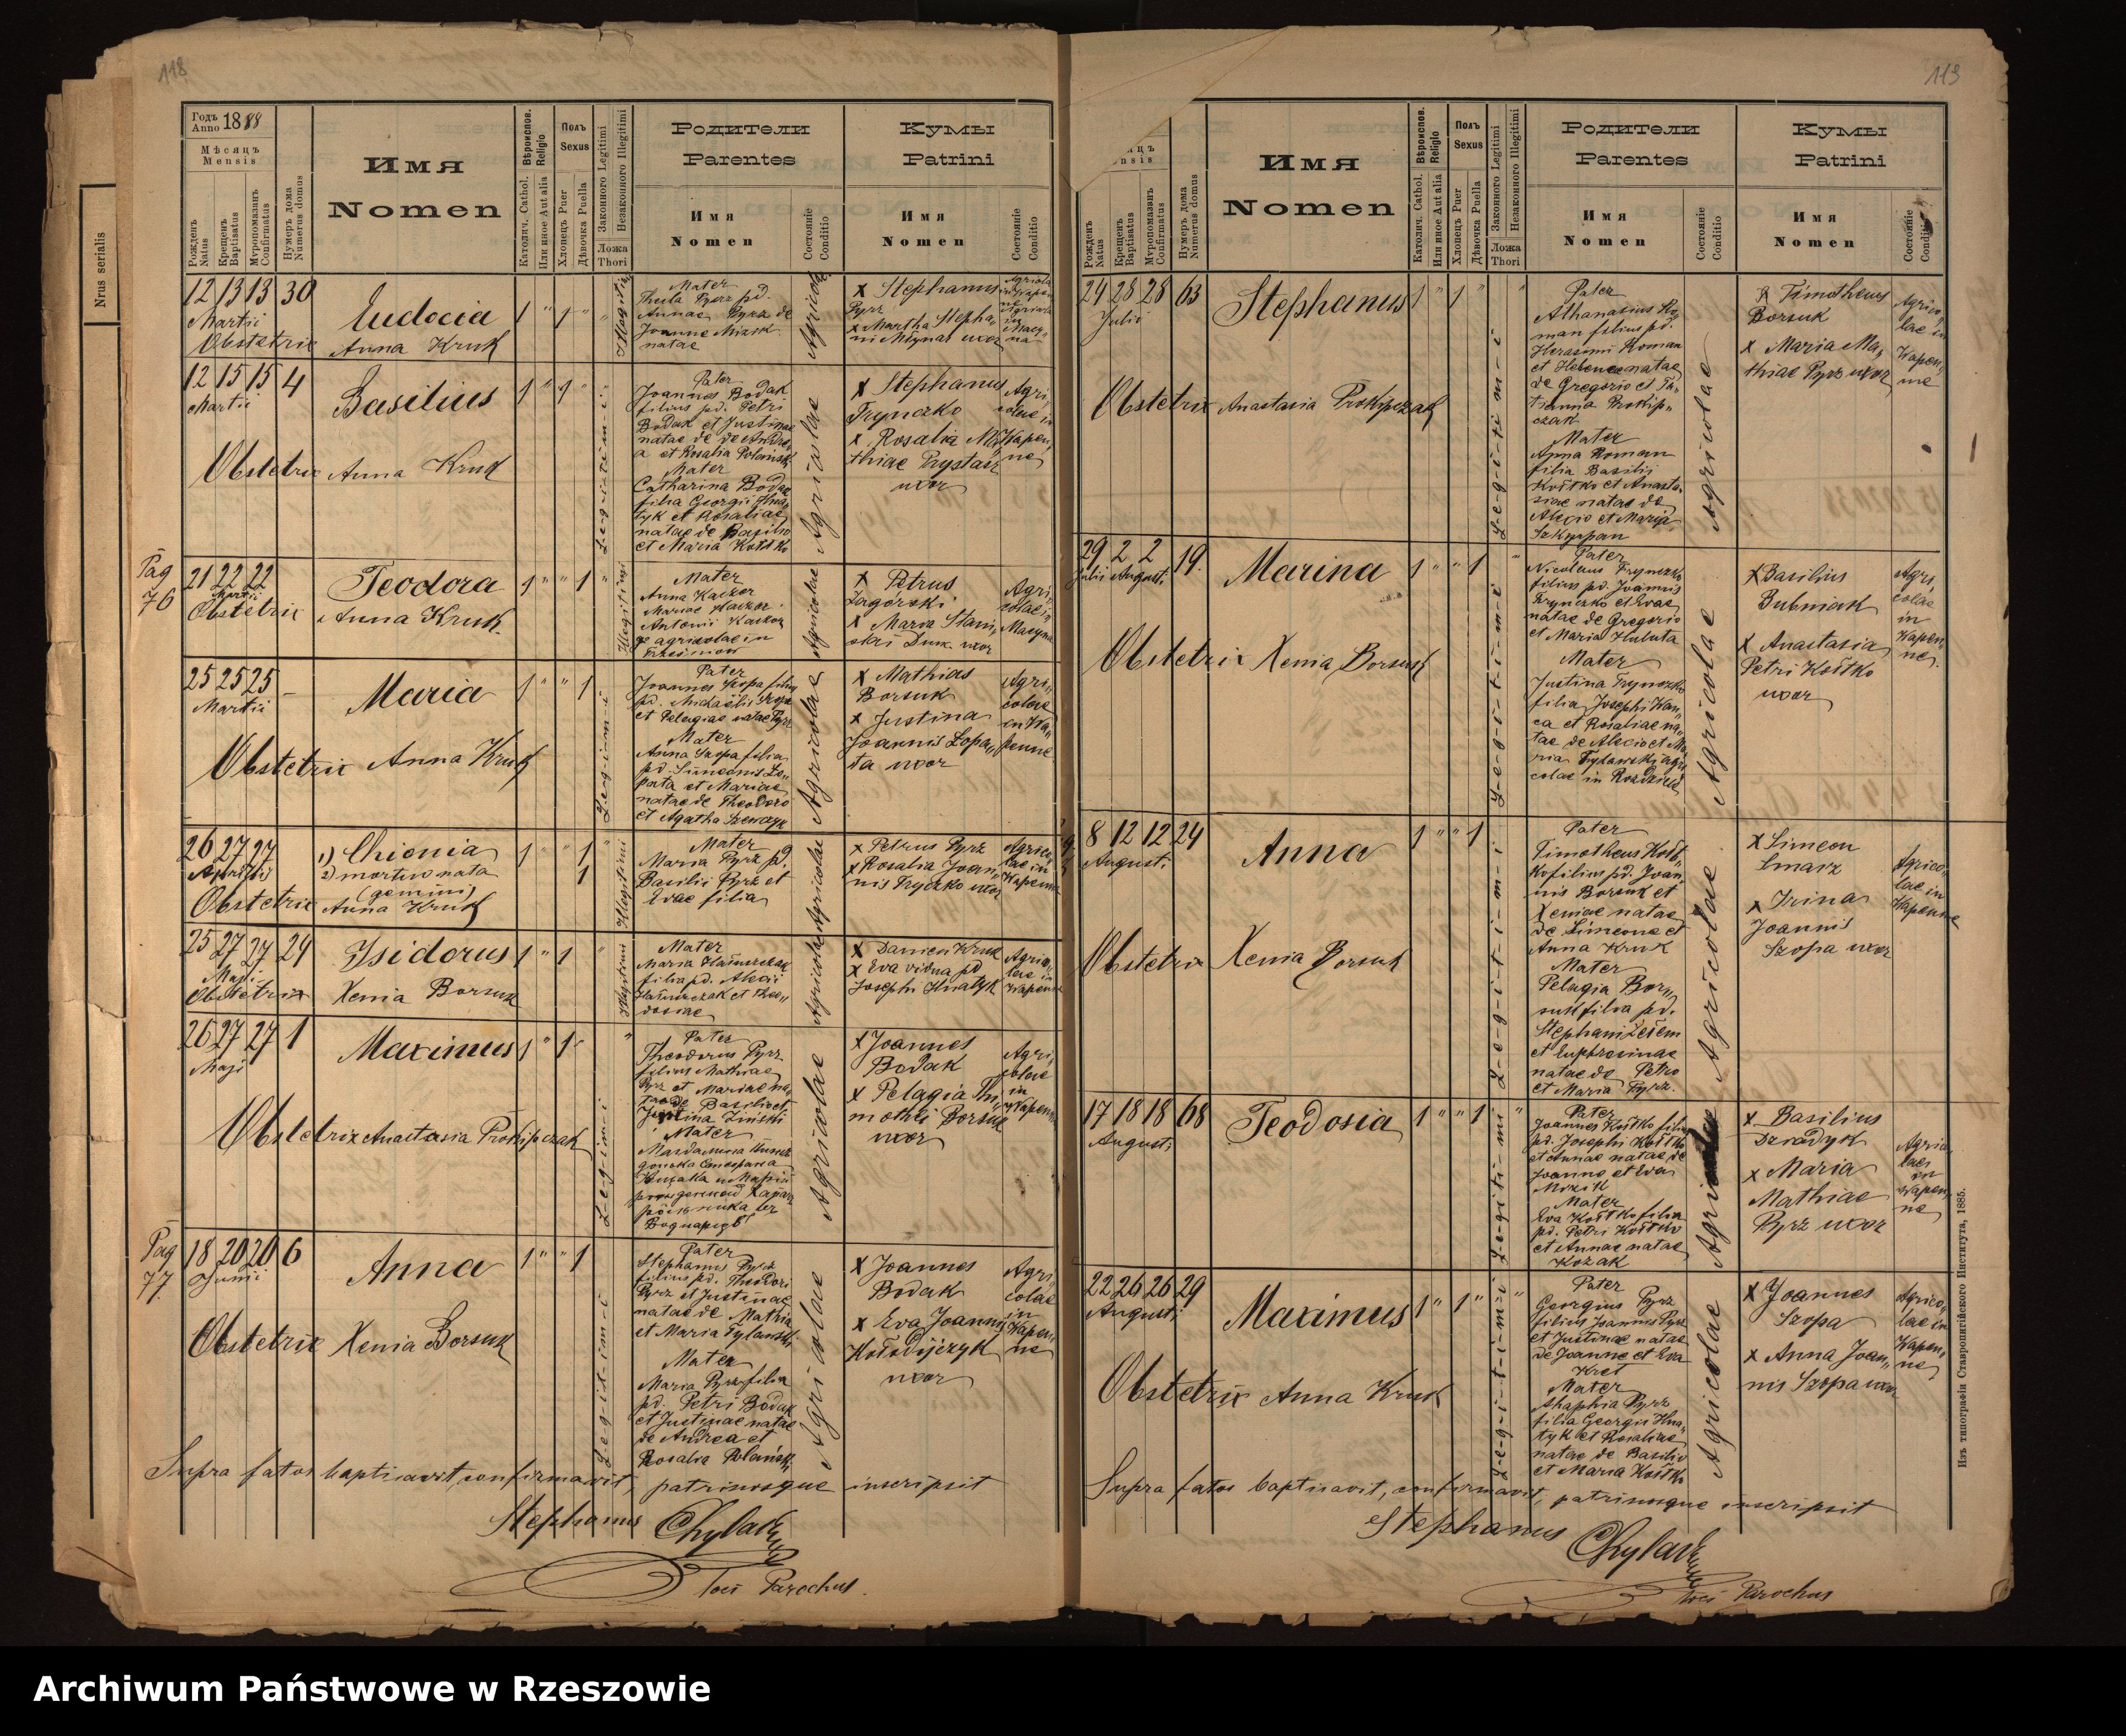 118
Годъ
Anno 1888
Мѣсяцъ
Mensis
Рожденъ
Natus
Крещенъ
Baptisatus
Мѵропомазанъ
Confirmatus
Нумеръ дома
Numerus domus
Имя
Nomen
Вѣроиспов.
Religio
Католич. Cathol.
Или иное Aut alia
Полъ
Sexus
Хлопецъ Puer
Дѣвочка Puella
Законного Legitimi
Незаконного Illegitimi
Ложа
Thori
Родители
Parentes
Имя
Nomen
Состояніе
Conditio
Кумы
Patrini
Имя
Nomen
Состояніе
Conditio
Nrus serialis
12 13 13 30
Martii
Eudocia
1 " 1 "
Obstetrix Anna Kruk
Illegitimi
Mater
Thecla Pyrz pd.
Annae Pyrz de
Joanne
natae
Agricolae
x Stephanus
Pyrz
x Martha Stepha„
ni Mlynar uxor
12 15 15 4
Martii
Basilius
1 " 1 "
Obstetrix Anna Kruk
L-e-g-i-t-i-m-i
Pater
Joannes Bodak
filius pd. Petri
Bodak et Justinae
natae de de Andre„
a et Rosalia Polański
Mater
Catharina Bodak
filia Georgii Hna„
tyk et Rosaliae
natae de Basilio
et Maria Kostko
Agricolae
x Stephanus
Tryneczko
x Rosalia Ma„
thiae Prystasz
uxor
Agri„
colae in
Wapen„
ne
Pag
76
21 22 22
Martii
Teodora
1 " " 1
Obstetrix Anna Kruk
Illegitimi
Mater
Anna Kaczor
Mariae Kaczor
Antonii Kaczor
de agricolae in
Agricolae
x Petrus
Zagórski
x Maria Stani„
slai Duu uxor
Agri„
colae in
Męcyna
25 25 25 –
Martii
Maria
1 " " 1
Obstetrix Anna Kruk
L-e-g-i-m-i
Pater
Joannes Szopa filius
pd. Michaëlis Szopa
et Pelagiae natae Pyrz
Mater
Anna Szopa filia
pd. Simeonis Ło„
pata et Mariae
natae de Theodoro
et Agatha Szewczyk
Agricolae
x Mathias
Borsuk
x Justina
Joannis Łopa„
ta uxor
Agri„
colae
in Wa„
penne
26 27 27
Aprilis
1) Chionia
2) mortuo nata
(gemini)
1 " " 1
1
Obstetrix Anna Kruk
Illegitimi
Mater
Maria Pyrz pd.
Basilii Pyrz et
Evae filia
Agricolae
x Petrus Pyrz
x Rosalia Joan„
nis Tryczko uxor
Agrico„
lae in
Wapenne
25 27 27 29
Maji
Isidorus
1 " 1
Obstetrix Xenia Borsuk
Illegitimi
Mater
filia pd. Alecii
et Theo„
dosiae
Agricolae
x Damien Kruk
x Eva vidua pd
Josephi Hnatyk
Agrico„
lae in
Wapenne
26 27 27 1
Maji
Maximus
1 " 1 "
Obstetrix Anastasia Prokipczak
L-e-g-i-m-i
Pater
Theodorus Pyrz
filius Mathiae
Pyrz et Mariae na„
tae de Basilio et
Justina Ziński
Mater
Agricolae
x Joannes
Bodak
x Pelagia Thi„
mothei Borsuk
uxor
Agri„
colae
in
Wapenne
Pag
77.
18 20 20 6
Junii
Anna
1 " " 1
Obstetrix Xenia Borsuk
L-e-g-i-t-i-m-i
Pater
Stephanus Pyrz
filius pd. Theodori
Pyrz et Justinae
natae de Mathia
et Maria Fylawski
Mater
Maria Pyrz filia
pd. Petri Bodak
et Justinae natae
de Andrea et
Rosalia Polański
Agricolae
x Joannes
Bodak
x Eva Joannis
Kołodijczyk
uxor
Agri„
colae
in
Wapen„
ne
Supra fatos baptisavit, confirmavit, patrinosque inscripsit
Stephanus Chylak
loci Parochus.
119
Рожденъ
Natus
Крещенъ
Baptisatus
Мѵропомазанъ
Confirmatus
Нумеръ дома
Numerus domus
Имя
Nomen
Вѣроиспов.
Religio
Католич. Cathol.
Или иное Aut alia
Полъ
Sexus
Хлопецъ Puer
Дѣвочка Puella
Законного Legitimi
Незаконного Illegitimi
Ложа
Thori
Родители
Parentes
Имя
Nomen
Состояніе
Conditio
Кумы
Patrini
Имя
Nomen
Состояніе
24 28 28 63
Julii
Stephanus
1 " 1 "
Obstetrix Anastasia Prokipczak
L-e-g-i-t-i-m-i
Pater
Athanasius Ro„
man filius pd.
Herasimi Roman
et Helenae natae
de Gregorio et Ta„
tianna Prokip„
czak
Mater
Anna Roman
filia Basilii
Kostko et Anasta„
siae natae de
Alecio et Maria
Szkyrpan
Agricolae
x Timotheus
Borsuk
x Maria Ma„
thiae Pyrz uxor
Agrico„
lae in
Wapen„
ne
29 2 2 19.
Julii Augusti
Marina
1 " " 1
Obstetrix Xenia Borsuk
L-e-g-i-t-i-m-i
Pater
Nicolaus Tryneczko
filius pd. Joannis
Tryneczko et Evae
natae de Gregorio
et Maria Huluta
Mater
Justina Tryneczko
filia Josephi Wan„
ca et Rosaliae na„
tae de Alecio et Ma„
ria Fylawski agri
colae in Rozdziele
Agricolae
x Basilius
Bubniak
x Anastasia
Petri Kostko
uxor
Agri„
colae
in
Wapen„
ne.
8 12 12 24
Augusti
Anna
1 " " 1
Obstetrix Xenia Borsuk
L-e-g-i-t-i-m-i
Pater
Timotheus Kost„
ko filius pd. Joan„
nis Borsuk et
Xeniae natae
de Simeone et
Anna Kruk
Mater
Pelagia Bor„
suk filia pd.
Stephani
et Euphrosinae
natae de Petro
et Maria Pyrz.
Agricolae
x Simeon
Smarz
x Irina
Joannis
Szopa uxor
Agrico„
lae in
Wapenne
17 18 18 68
Augusti
Teodosia
1 " " 1
L-e-g-i-t-i-m-i
Pater
Joannes Kostko filius
pd. Josephi Kostko
et Annae natae de
Joanne et Eva
Mizik
Mater
Eva Kostko filia
pd. Petri Kostko
et Annae natae
Kozak
Agricolae
x Basilius
Dziadyk
x Maria
Mathiae
Pyrz uxor
Agrico„
lae
in
Wapen„
ne
22 26 26 29
Augusti
Maximus
1 " 1 "
Obstetrix Anna Kruk
L-e-g-i-t-i-m-i
Pater
Georgius Pyrz
filius Joannis Pyrz
et Justinae natae
de Joanne et Eva
Kret
Mater
Pyrz
filia Georgii Hna„
tyk et Rosaliae
natae de Basilio
et Maria Kostko
Agricolae
x Joannes
Szopa
x Anna Joan„
nis Szopa uxor
Agrico„
lae in
Wapen„
ne
Supra fatos baptisavit, confirmavit, patrinosque inscripsit
Stephanus Chylak
loci Parochus
Изъ типографіи Ставропигійского Института, 1885.
Archiwum Państwowe w Rzeszowie